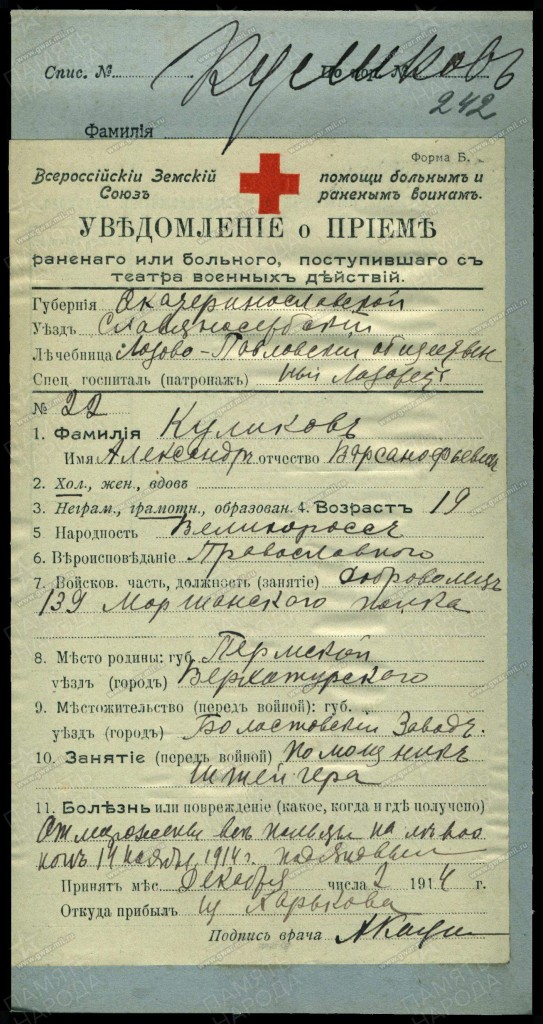 Куликовъ
Спис. №
242
Фамилія
Форма Б.
Всероссійскій Земскій Союзъ помощи больнымъ и раненымъ воинамъ.
УВѢДОМЛЕНІЕ о ПРІЕМѢ
раненаго или больного, поступившаго съ
театра военныхъ дѣйствій.
Губернія Екатеринославской
Уѣздъ Славяносербскій
Лѣчебница Лозово-Павловскій общественный
Спец. госпиталь (патронажъ) лазаретъ
№ 22
1. Фамилія Куликовъ
Имя Александръ отчество Варсанофьевичъ
2. Хол., жен., вдовъ
3. Неграм., грамотн., образован. 4. Возрастъ 19
5. Народность Великороссъ
6. Вѣроисповѣданіе Православного
7. Войсков. часть, должность (занятіе) Доброволецъ
139 Моршанского полка
8. Мѣсто родины: губ. Пермской
уѣздъ (городъ) Верхотурского
9. Мѣстожительство (передъ войной): губ.
уѣздъ (городъ) Заводъ.
10. Занятіе (передъ войной) помощникъ
штейгера
11. Болѣзнь или поврежденіе (какое, когда и гдѣ получено)
все пальцы на
14 ноября 1914 г.
Принятъ мѣс. декабря числа 2 1914 г.
Откуда прибылъ из Харькова
Подпись врача